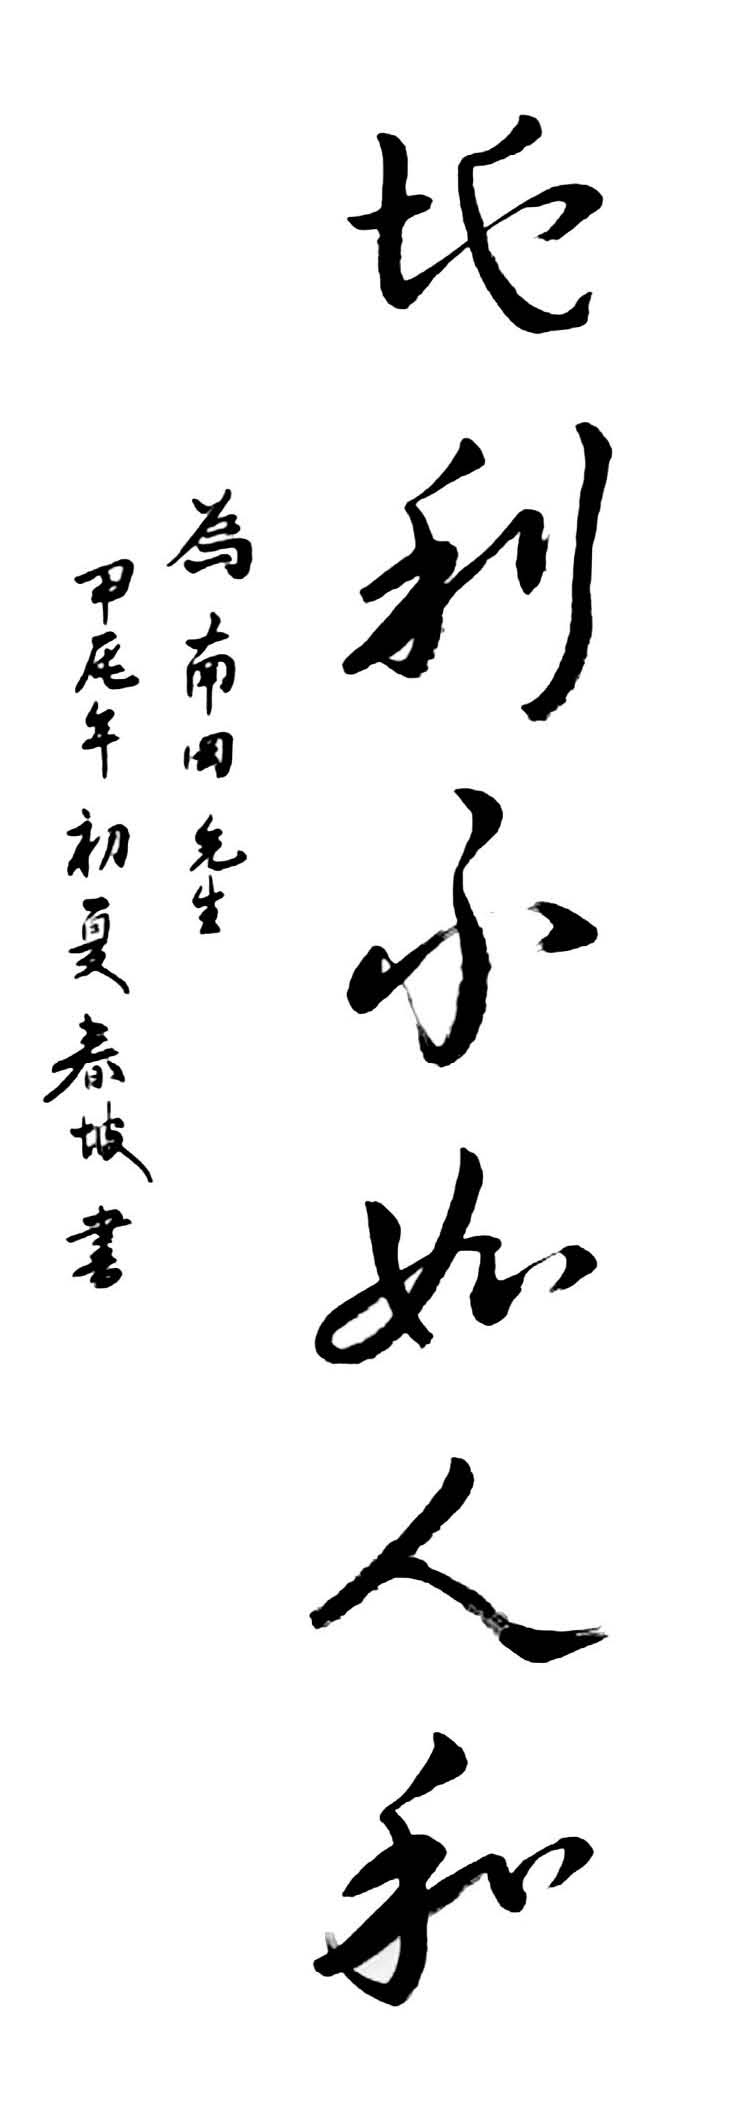 地利不如人和
為南岡先生
甲辰年初夏春坡書